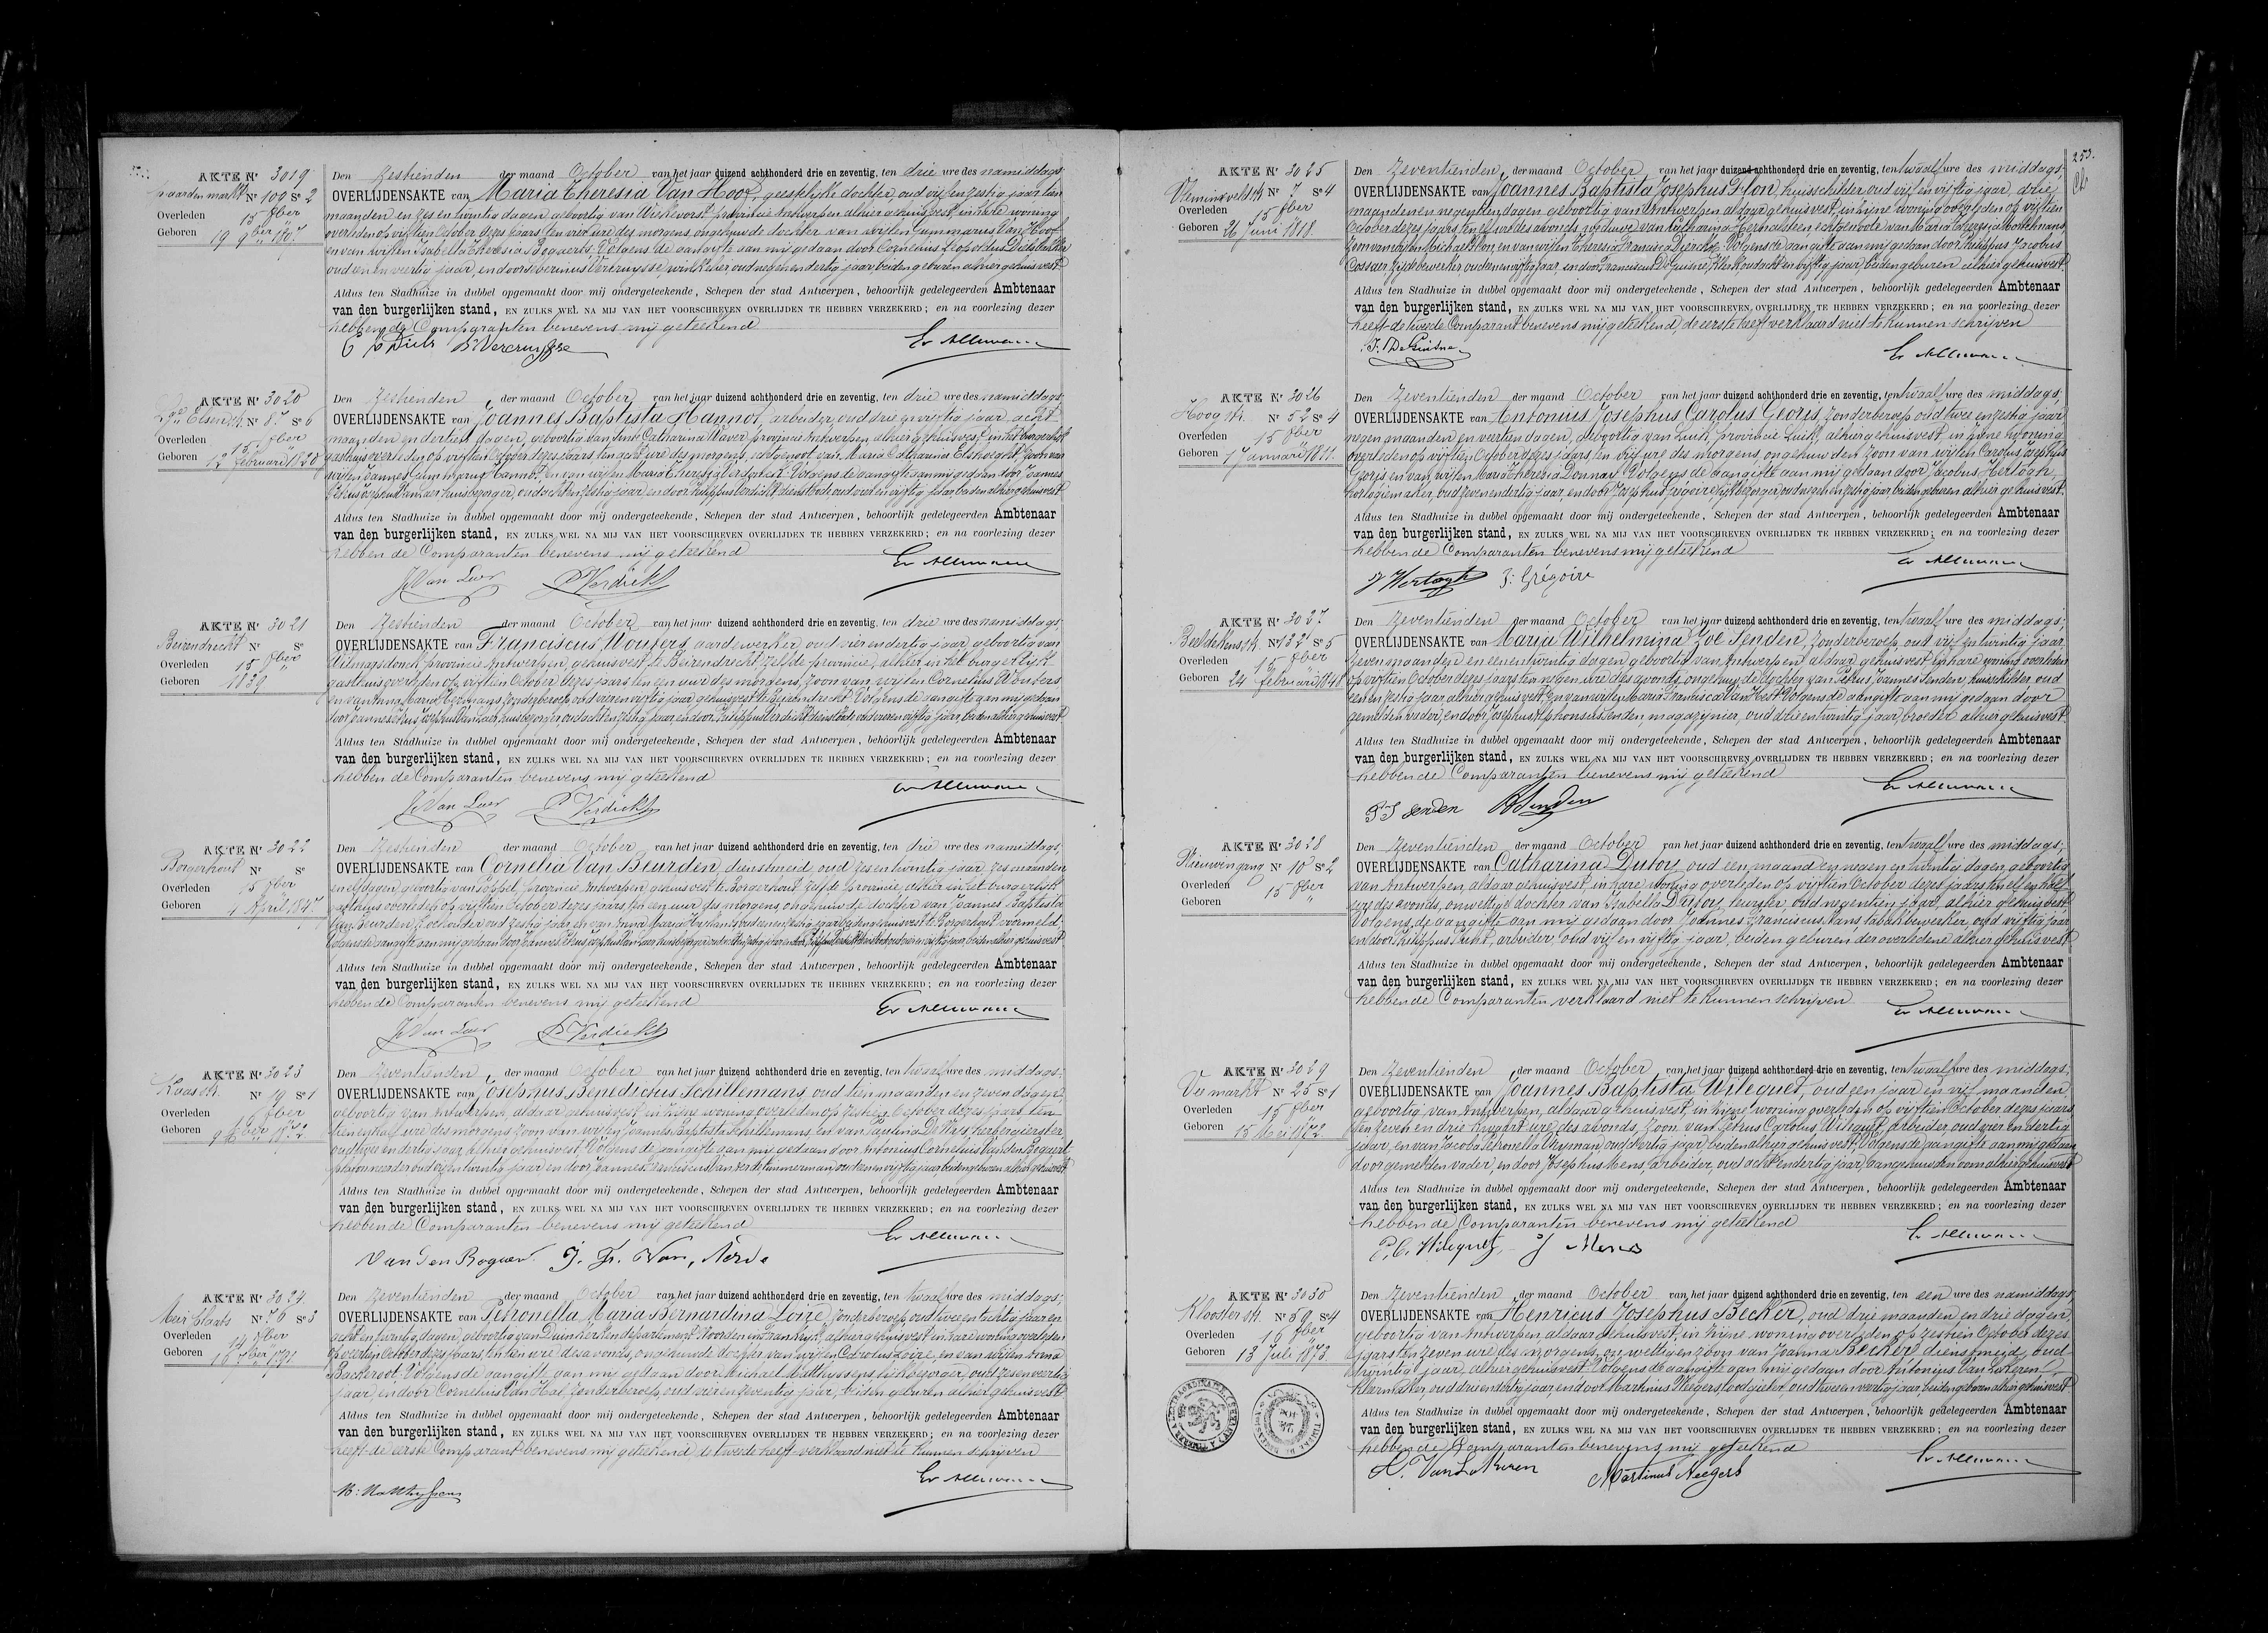 AKTE Nr 3019
Paardenmarkt Nr 109 Sn 2
Overleden 15 8ber
Geboren 19 9ber 1807
Den Zestienden der maand October van het jaar duizend achthonderd drie en zeventig, ten drie ure des namiddags
OVERLIJDENSAKTE van Maria Theresia Van Hoof, geestelijke dochter, oud vijf en zestig jaar, tien
maanden en zes en twintig dagen, geboortig van Wiekevorst, provincie Antwerpen, alhier gehuisvest, in hare woning
overleden op vijftien October dezes jaars, ten vier ure des morgens, ongehuwde dochter van wijlen Gummarus Van Hoof
en van wijlen Isabella Theresia Bogaerts. Volgens de aangifte aan mij gedaan door Cornelius Leopoldus
oud en veertig jaar, en door Severinus Vercruysse, winkelier, oud negen en dertig jaar, beiden geburen alhier gehuisvest
Aldus ten Stadhuize in dubbel opgemaakt door mij ondergeteekende, Schepen der stad Antwerpen, behoorlijk gedelegeerden Ambtenaar
van den burgerlijken stand, EN ZULKS WEL NA MIJ VAN HET VOORSCHREVEN OVERLIJDEN TE HEBBEN VERZEKERD; en na voorlezing dezer
hebben de Comparanten benevens mij geteekend
S Vercruysse Ev Allewaer
AKTE Nr 3020
Nr 87 Sn 6
Overleden 15 8ber
Geboren 12 februarij 1820
Den Zestienden der maand October van het jaar duizend achthonderd drie en zeventig, ten drie ure des namiddags
OVERLIJDENSAKTE van Joannes Baptista Hannot, arbeider, oud drie en vijftig jaar, acht
maanden en dertien dagen, geboortig van Sinte Catharina Waver, provincie Antwerpen, alhier gehuisvest, in het burgerlijk
gasthuis overleden op vijftien October dezes jaars, ten acht ure des morgens, echtgenoot van Maria Catharina Elshoeght, zoon van
wijlen Joannes Hannot, en van wijlen Maria Theresia Verdickt. Volgens de aangifte aan mij gedaan door Joannes
Petrus Josephus Van Laer, huisbezorger, oud acht en zestig jaar, en door Philippus Verdickt, dienstbode, oud vier en vijftig jaar, beiden alhier gehuisvest
Aldus ten Stadhuize in dubbel opgemaakt door mij ondergeteekende, Schepen der stad Antwerpen, behoorlijk gedelegeerden Ambtenaar
van den burgerlijken stand, EN ZULKS WEL NA MIJ VAN HET VOORSCHREVEN OVERLIJDEN TE HEBBEN VERZEKERD; en na voorlezing dezer
hebben de Comparanten benevens mij geteekend
J Van Laer P Verdickt Ev Allewaer
AKTE Nr 3021
Beirendrecht Nr Sn
Overleden 15 8ber
Geboren 1839
Den Zestienden der maand October van het jaar duizend achthonderd drie en zeventig, ten drie ure des namiddags
OVERLIJDENSAKTE van Franciscus Wouters, aardewerker, oud vier en dertig jaar, geboortig van
Wilmarsdonck, provincie Antwerpen, gehuisvest te Beirendrecht, zelfde provincie, alhier in het burgerlijk
gasthuis overleden op vijftien October dezes jaars ten een uur des morgens, zoon van wijlen Cornelius Wouters
en van Anna Maria Hermans, zonder beroep, oud vijftig jaar, gehuisvest te Beirendrecht. Volgens de aangifte aan mij gedaan
door Joannes Petrus Josephus Van Laer, huisbezorger, oud acht en zestig jaar, en door Philippus Verdickt, dienstbode, oud vier en vijftig jaar, beiden alhier gehuisvest
Aldus ten Stadhuize in dubbel opgemaakt door mij ondergeteekende, Schepen der stad Antwerpen, behoorlijk gedelegeerden Ambtenaar
van den burgerlijken stand, EN ZULKS WEL NA MIJ VAN HET VOORSCHREVEN OVERLIJDEN TE HEBBEN VERZEKERD; en na voorlezing dezer
hebben de Comparanten benevens mij geteekend
J Van Laer P Verdickt Ev Allewaer
AKTE Nr 3022
Borgerhout Nr Sn
Overleden 15 8ber
Geboren 4 April 1847
Den Zestienden der maand October van het jaar duizend achthonderd drie en zeventig, ten drie ure des namiddags
OVERLIJDENSAKTE van Cornelia Van Beurden, dienstmeid, oud zes en twintig jaar, zes maanden
en elf dagen, geboortig van Poppel, provincie Antwerpen, gehuisvest te Borgerhout, zelfde provincie, alhier in het burgerlijk
gasthuis overleden op vijftien October dezes jaars, ten een uur des morgens, ongehuwde dochter van Joannes Baptista
Van Beurden, oud zestig jaar, en van Anna Maria beiden gehuisvest te Borgerhout voormeld
Volgens de aangifte aan mij gedaan door Joannes Petrus Josephus Van Laer, huisbezorger, oud acht en zestig jaar, en door Philippus Verdickt, dienstbode, oud vier en vijftig jaar, beiden alhier gehuisvest
Aldus ten Stadhuize in dubbel opgemaakt door mij ondergeteekende, Schepen der stad Antwerpen, behoorlijk gedelegeerden Ambtenaar
van den burgerlijken stand, EN ZULKS WEL NA MIJ VAN HET VOORSCHREVEN OVERLIJDEN TE HEBBEN VERZEKERD; en na voorlezing dezer
hebben de Comparanten benevens mij geteekend
J Van Laer P Verdickt Ev Allewaer
AKTE Nr 3023
Kaasstr. Nr 19 Sn 1
Overleden 8ber
Geboren
Den Zeventienden der maand October van het jaar duizend achthonderd drie en zeventig, ten twaalf ure des middags
OVERLIJDENSAKTE van Josephus Benedictus Schillemans, oud tien maanden en zeven dagen,
geboortig van Antwerpen, aldaar gehuisvest, in zijne woning overleden op zestien October dezes jaars, ten
tien en half ure des morgens, zoon van wijlen Joannes Baptista Schillemans, en van Paulina De Wys, herbergierster,
oud twee en dertig jaar, alhier gehuisvest. Volgens de aangifte aan mij gedaan door Antonius Cornelius Van den Bogaert
plafonneerder, oud en twintig jaar, en door Joannes Franciscus Van Aerde, timmerman, oud en vijftig jaar, beiden geburen alhier gehuisvest
Aldus ten Stadhuize in dubbel opgemaakt door mij ondergeteekende, Schepen der stad Antwerpen, behoorlijk gedelegeerden Ambtenaar
van den burgerlijken stand, EN ZULKS WEL NA MIJ VAN HET VOORSCHREVEN OVERLIJDEN TE HEBBEN VERZEKERD; en na voorlezing dezer
hebben de Comparanten benevens mij geteekend
Van Den Bogaert J. Fr. Van Aerde Ev Allewaer
AKTE Nr 3024
Meir plaats Nr 76 Sn 3
Overleden 14 8ber
Geboren 16 7ber 1791
Den Zeventienden der maand October van het jaar duizend achthonderd drie en zeventig, ten twaalf ure des middags;
OVERLIJDENSAKTE van Petronella Maria Bernardina Loize, zonder beroep, oud twee en tachtig jaar en
acht en twintig dagen, geboortig van Duinkerken departement Noorden in Frankrijk, alhier gehuisvest, in hare woning overleden
op veertien October dezes jaars, ten tien ure des avonds, ongehuwde dochter van wijlen Carolus Loize, en van wijlen Anna
Backeroot. Volgens de aangifte aan mij gedaan door Michael Matthyssens, lijkbezorger, oud zes en veertig
jaar, en door Cornelius Van Hal, zonder beroep, oud vier en zeventig jaar, beiden geburen alhier gehuisvest
Aldus ten Stadhuize in dubbel opgemaakt door mij ondergeteekende, Schepen der stad Antwerpen, behoorlijk gedelegeerden Ambtenaar
van den burgerlijken stand, EN ZULKS WEL NA MIJ VAN HET VOORSCHREVEN OVERLIJDEN TE HEBBEN VERZEKERD; en na voorlezing dezer
heeft de eerste Comparant benevens mij geteekend de tweede heeft verklaard niet te kunnen schrijven
M: Matthyssens Ev Allewaer
253.
AKTE Nr 3025
Nr 7 Sn 4
Overleden 15 8ber
Geboren 26 Juni 1818
Den Zeventienden der maand October van het jaar duizend achthonderd drie en zeventig, ten twaalf ure des middags
OVERLIJDENSAKTE van Joannes Baptista Josephus Ilon, huisschilder, oud vijf en vijftig jaar, drie
maanden en negentien dagen, geboortig van Antwerpen, aldaar gehuisvest, in zijne woning overleden op vijftien
October dezes jaars, ten elf ure des avonds, weduwe van Catharina Hermans, en echtgenoote van Maria Theresia Mortelmans,
zoon van wijlen Michael Ilon, en van wijlen Theresia Francisca Dierckx. Volgens de aangifte aan mij gedaan door Philippus Jacobus
Cossaer, zijdebewerker, oud en vijftig jaar, en door Franciscus De Guisne, klerk, oud acht en vijftig jaar, beiden geburen alhier gehuisvest.
Aldus ten Stadhuize in dubbel opgemaakt door mij ondergeteekende, Schepen der stad Antwerpen, behoorlijk gedelegeerden Ambtenaar
van den burgerlijken stand, EN ZULKS WEL NA MIJ VAN HET VOORSCHREVEN OVERLIJDEN TE HEBBEN VERZEKERD; en na voorlezing dezer
heeft de tweede Comparant benevens mij geteekend, de eerste heeft verklaard niet te kunnen schrijven
F. De Guisne Ev Allewaer
AKTE Nr 3026
Hoog str. Nr 52 Sn 4
Overleden 15 8ber
Geboren 1 Januarij 1811
Den Zeventienden der maand October van het jaar duizend achthonderd drie en zeventig, ten twaalf ure des middags;
OVERLIJDENSAKTE van Antonius Josephus Carolus Gloris, zonder beroep, oud twee en zestig jaar
negen maanden en veertien dagen, geboortig van Luik, provincie Luik, alhier gehuisvest, in zijne woning
overleden op vijftien October dezes jaars, ten vijf ure des morgens, ongehuwden zoon van wijlen Carolus Josephus
Gloris, en van wijlen Maria Theresia Donnay. Volgens de aangifte aan mij gedaan door Jacobus Hertogh,
horlogiemaker, oud zeven en dertig jaar, en door Josephus Grégoire, lijkbezorger, oud negen en zestig jaar, beiden geburen alhier gehuisvest.
Aldus ten Stadhuize in dubbel opgemaakt door mij ondergeteekende, Schepen der stad Antwerpen, behoorlijk gedelegeerden Ambtenaar
van den burgerlijken stand, EN ZULKS WEL NA MIJ VAN HET VOORSCHREVEN OVERLIJDEN TE HEBBEN VERZEKERD; en na voorlezing dezer
hebben de Comparanten benevens mij geteekend
J Hertogh J: Grégoire Ev Allewaer
AKTE Nr 3027
Nr 132 Sn 5
Overleden 15 8ber
Geboren 24 februarij 1848
Den Zeventienden der maand October van het jaar duizend achthonderd drie en zeventig, ten twaalf ure des middags;
OVERLIJDENSAKTE van Maria Wilhelmina Zoë Senden, zonder beroep, oud vijf en twintig jaar,
zeven maanden en een en twintig dagen, geboortig van Antwerpen, aldaar gehuisvest, in hare woning overleden
op vijftien October dezes jaars, ten negen ure des avonds, ongehuwde dochter van Petrus Joannes Senden, huisschilder, oud
en zestig jaar, alhier gehuisvest, en van wijlen Maria Francisca Van Hest. Volgens de aangifte aan mij gedaan door
gemelden vader, en door Josephus Alphonsus Senden, magazijnier, oud drie en twintig jaar, broeder, alhier gehuisvest
Aldus ten Stadhuize in dubbel opgemaakt door mij ondergeteekende, Schepen der stad Antwerpen, behoorlijk gedelegeerden Ambtenaar
van den burgerlijken stand, EN ZULKS WEL NA MIJ VAN HET VOORSCHREVEN OVERLIJDEN TE HEBBEN VERZEKERD; en na voorlezing dezer
hebben de Comparanten benevens mij geteekend
P J Senden Senden Ev Allewaer
AKTE Nr 3028
Nieuwingang Nr 10 Sn 2
Overleden 15 8ber
Geboren "
Den Zeventienden der maand October van het jaar duizend achthonderd drie en zeventig, ten twaalf ure des middags;
OVERLIJDENSAKTE van Catharina Dutoy, oud een maand en negen en twintig dagen, geboortig
van Antwerpen, aldaar gehuisvest, in hare woning overleden op vijftien October dezes jaars, ten elf en half
ure des avonds, onwettige dochter van Isabella Dutoy, leurster, oud negentien jaar, alhier gehuisvest
Volgens de aangifte aan mij gedaan door Joannes Franciscus Pans, tabakbewerker, oud vijftig jaar
en door Philippus arbeider, oud vijf en vijftig jaar, beiden geburen der overledene alhier gehuisvest
Aldus ten Stadhuize in dubbel opgemaakt door mij ondergeteekende, Schepen der stad Antwerpen, behoorlijk gedelegeerden Ambtenaar
van den burgerlijken stand, EN ZULKS WEL NA MIJ VAN HET VOORSCHREVEN OVERLIJDEN TE HEBBEN VERZEKERD; en na voorlezing dezer
hebben de Comparanten verklaard niet te kunnen schrijven
Ev Allewaer
AKTE Nr 3029
Vee markt Nr 25 Sn 1
Overleden 15 8ber
Geboren 15 Mei 1872
Den Zeventienden der maand October van het jaar duizend achthonderd drie en zeventig, ten twaalf ure des middags;
OVERLIJDENSAKTE van Joannes Baptista Wilequet, oud een jaar en vijf maanden,
geboortig van Antwerpen, aldaar gehuisvest, in zijne woning overleden op vijftien October dezes jaars
ten zeven en drie kwaart ure des avonds, zoon van Petrus Carolus Wilequet, arbeider, oud vier en dertig
jaar, en van Jacoba Petronella Vrysman, oud dertig jaar, beiden alhier gehuisvest. Volgens de aangifte aan mij gedaan
door gemelden vader, en door Josephus Mens, arbeider, oud acht en dertig jaar, aangehuwden oom alhier gehuisvest
Aldus ten Stadhuize in dubbel opgemaakt door mij ondergeteekende, Schepen der stad Antwerpen, behoorlijk gedelegeerden Ambtenaar
van den burgerlijken stand, EN ZULKS WEL NA MIJ VAN HET VOORSCHREVEN OVERLIJDEN TE HEBBEN VERZEKERD; en na voorlezing dezer
hebben de Comparanten benevens mij geteekend
P. C. Wilequet J Mens Ev Allewaer
AKTE Nr 3030
Klooster str. Nr 59 Sn 4
Overleden 16 8ber
Geboren 13 Juli 1873
Den Zeventienden der maand October van het jaar duizend achthonderd drie en zeventig, ten een ure des namiddags
OVERLIJDENSAKTE van Henricus Josephus Becker, oud drie maanden en drie dagen,
geboortig van Antwerpen, aldaar gehuisvest, in zijne woning overleden op zestien October dezes
jaars ten zeven ure des morgens, onwettigen zoon van Joanna Becker, dienstmeid, oud
twintig jaar, alhier gehuisvest. Volgens de aangifte aan mij gedaan door Antonius Van Lokeren,
kleermaker, oud drie en dertig jaar, en door Martinus Neegers, loodgieter, oud twee en veertig jaar, beiden geburen alhier gehuisvest
Aldus ten Stadhuize in dubbel opgemaakt door mij ondergeteekende, Schepen der stad Antwerpen, behoorlijk gedelegeerden Ambtenaar
van den burgerlijken stand, EN ZULKS WEL NA MIJ VAN HET VOORSCHREVEN OVERLIJDEN TE HEBBEN VERZEKERD; en na voorlezing dezer
hebben de Comparanten benevens mij geteekend
A. Van Lokeren Martinus Neegers Ev Allewaer